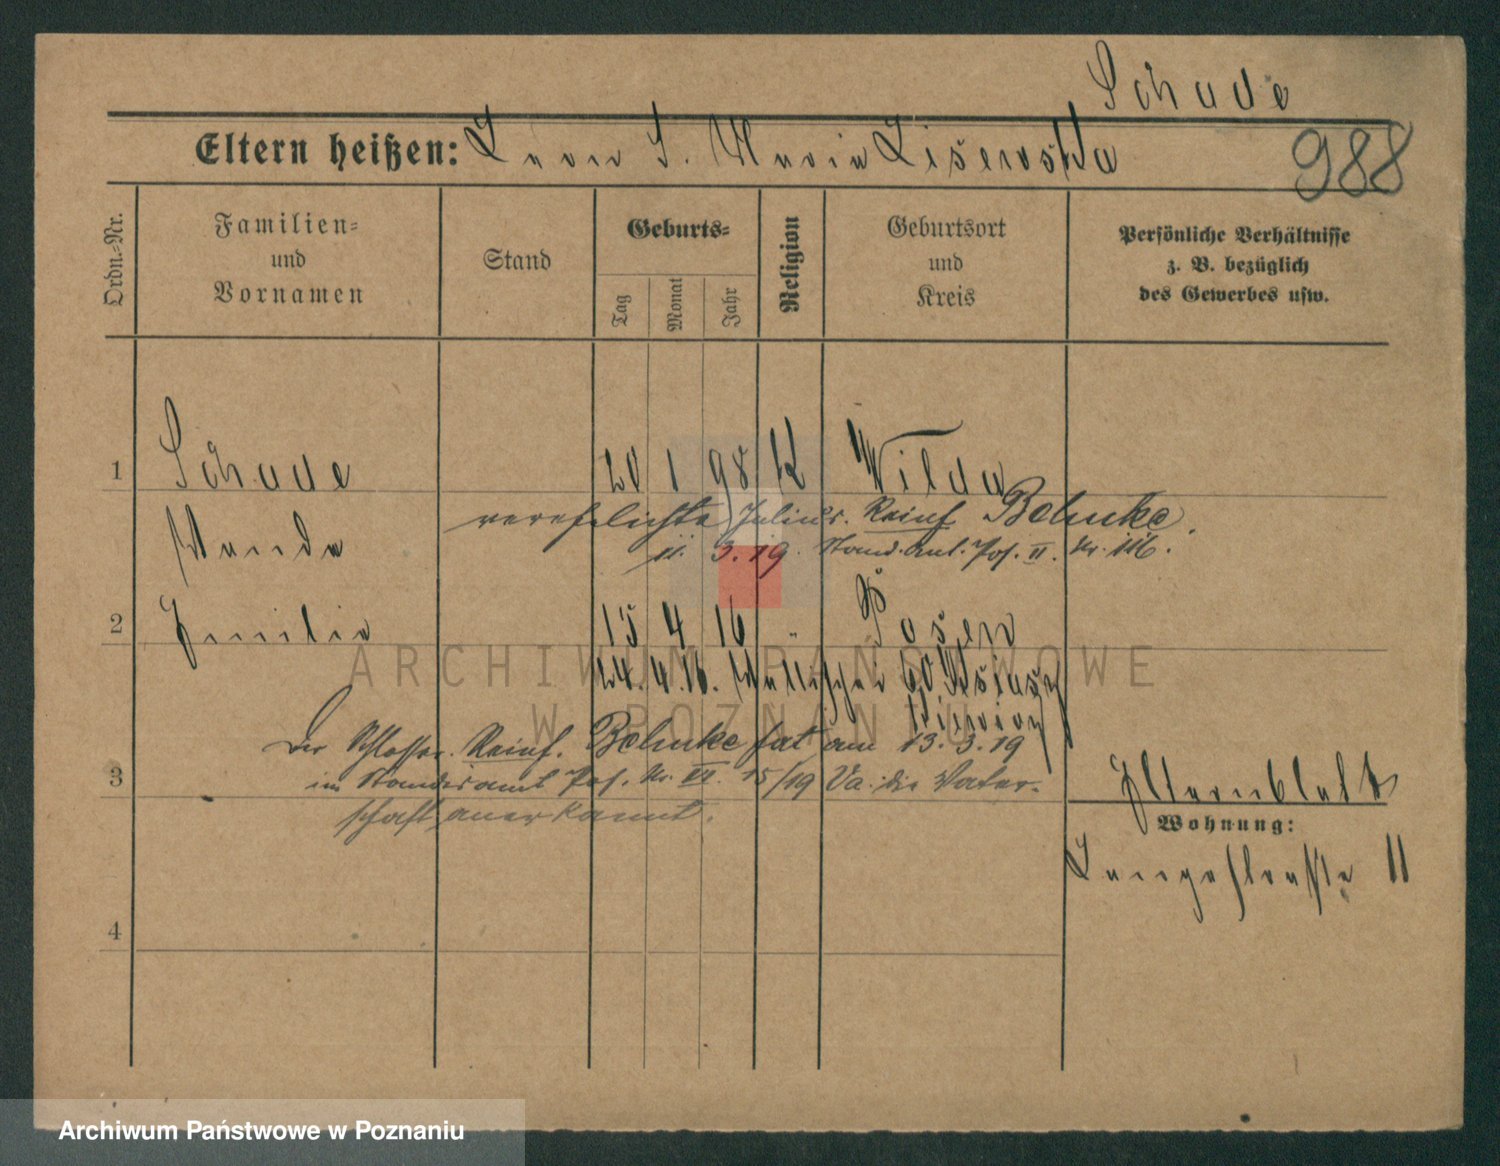 Schade
Eltern heißen: Leon S. Maria Lisewska
988
Ordn.-Nr.
Familien-
und
Vornamen
Stand
Geburts-
Tag
Monat
Jahr
Religion
Geburtsort
und
Kreis
Persönliche Verhältnisse
z. B. bezüglich
des Gewerbes usw.
1 Schade 20 1 98 K Wilda
verehelichte Julius Reinh. Behnke
11. 3. 19. Stand. amt. Pos. II. Nr. 116.
Wanda
2 Emilie 15 4 16 " Posen
24. 4. 16.
Der Schlosser Reinh. Behnke hat am 13. 3. 19
3 im Standesamt Pos. Nr. VI. 15/19 Va: die Vater-
schaft anerkannt.
Elternblatt
Wohnung:
Langestraße 11
4
ARCHIWUM PAŃSTWOWE
W POZNANIU
Archiwum Państwowe w Poznaniu